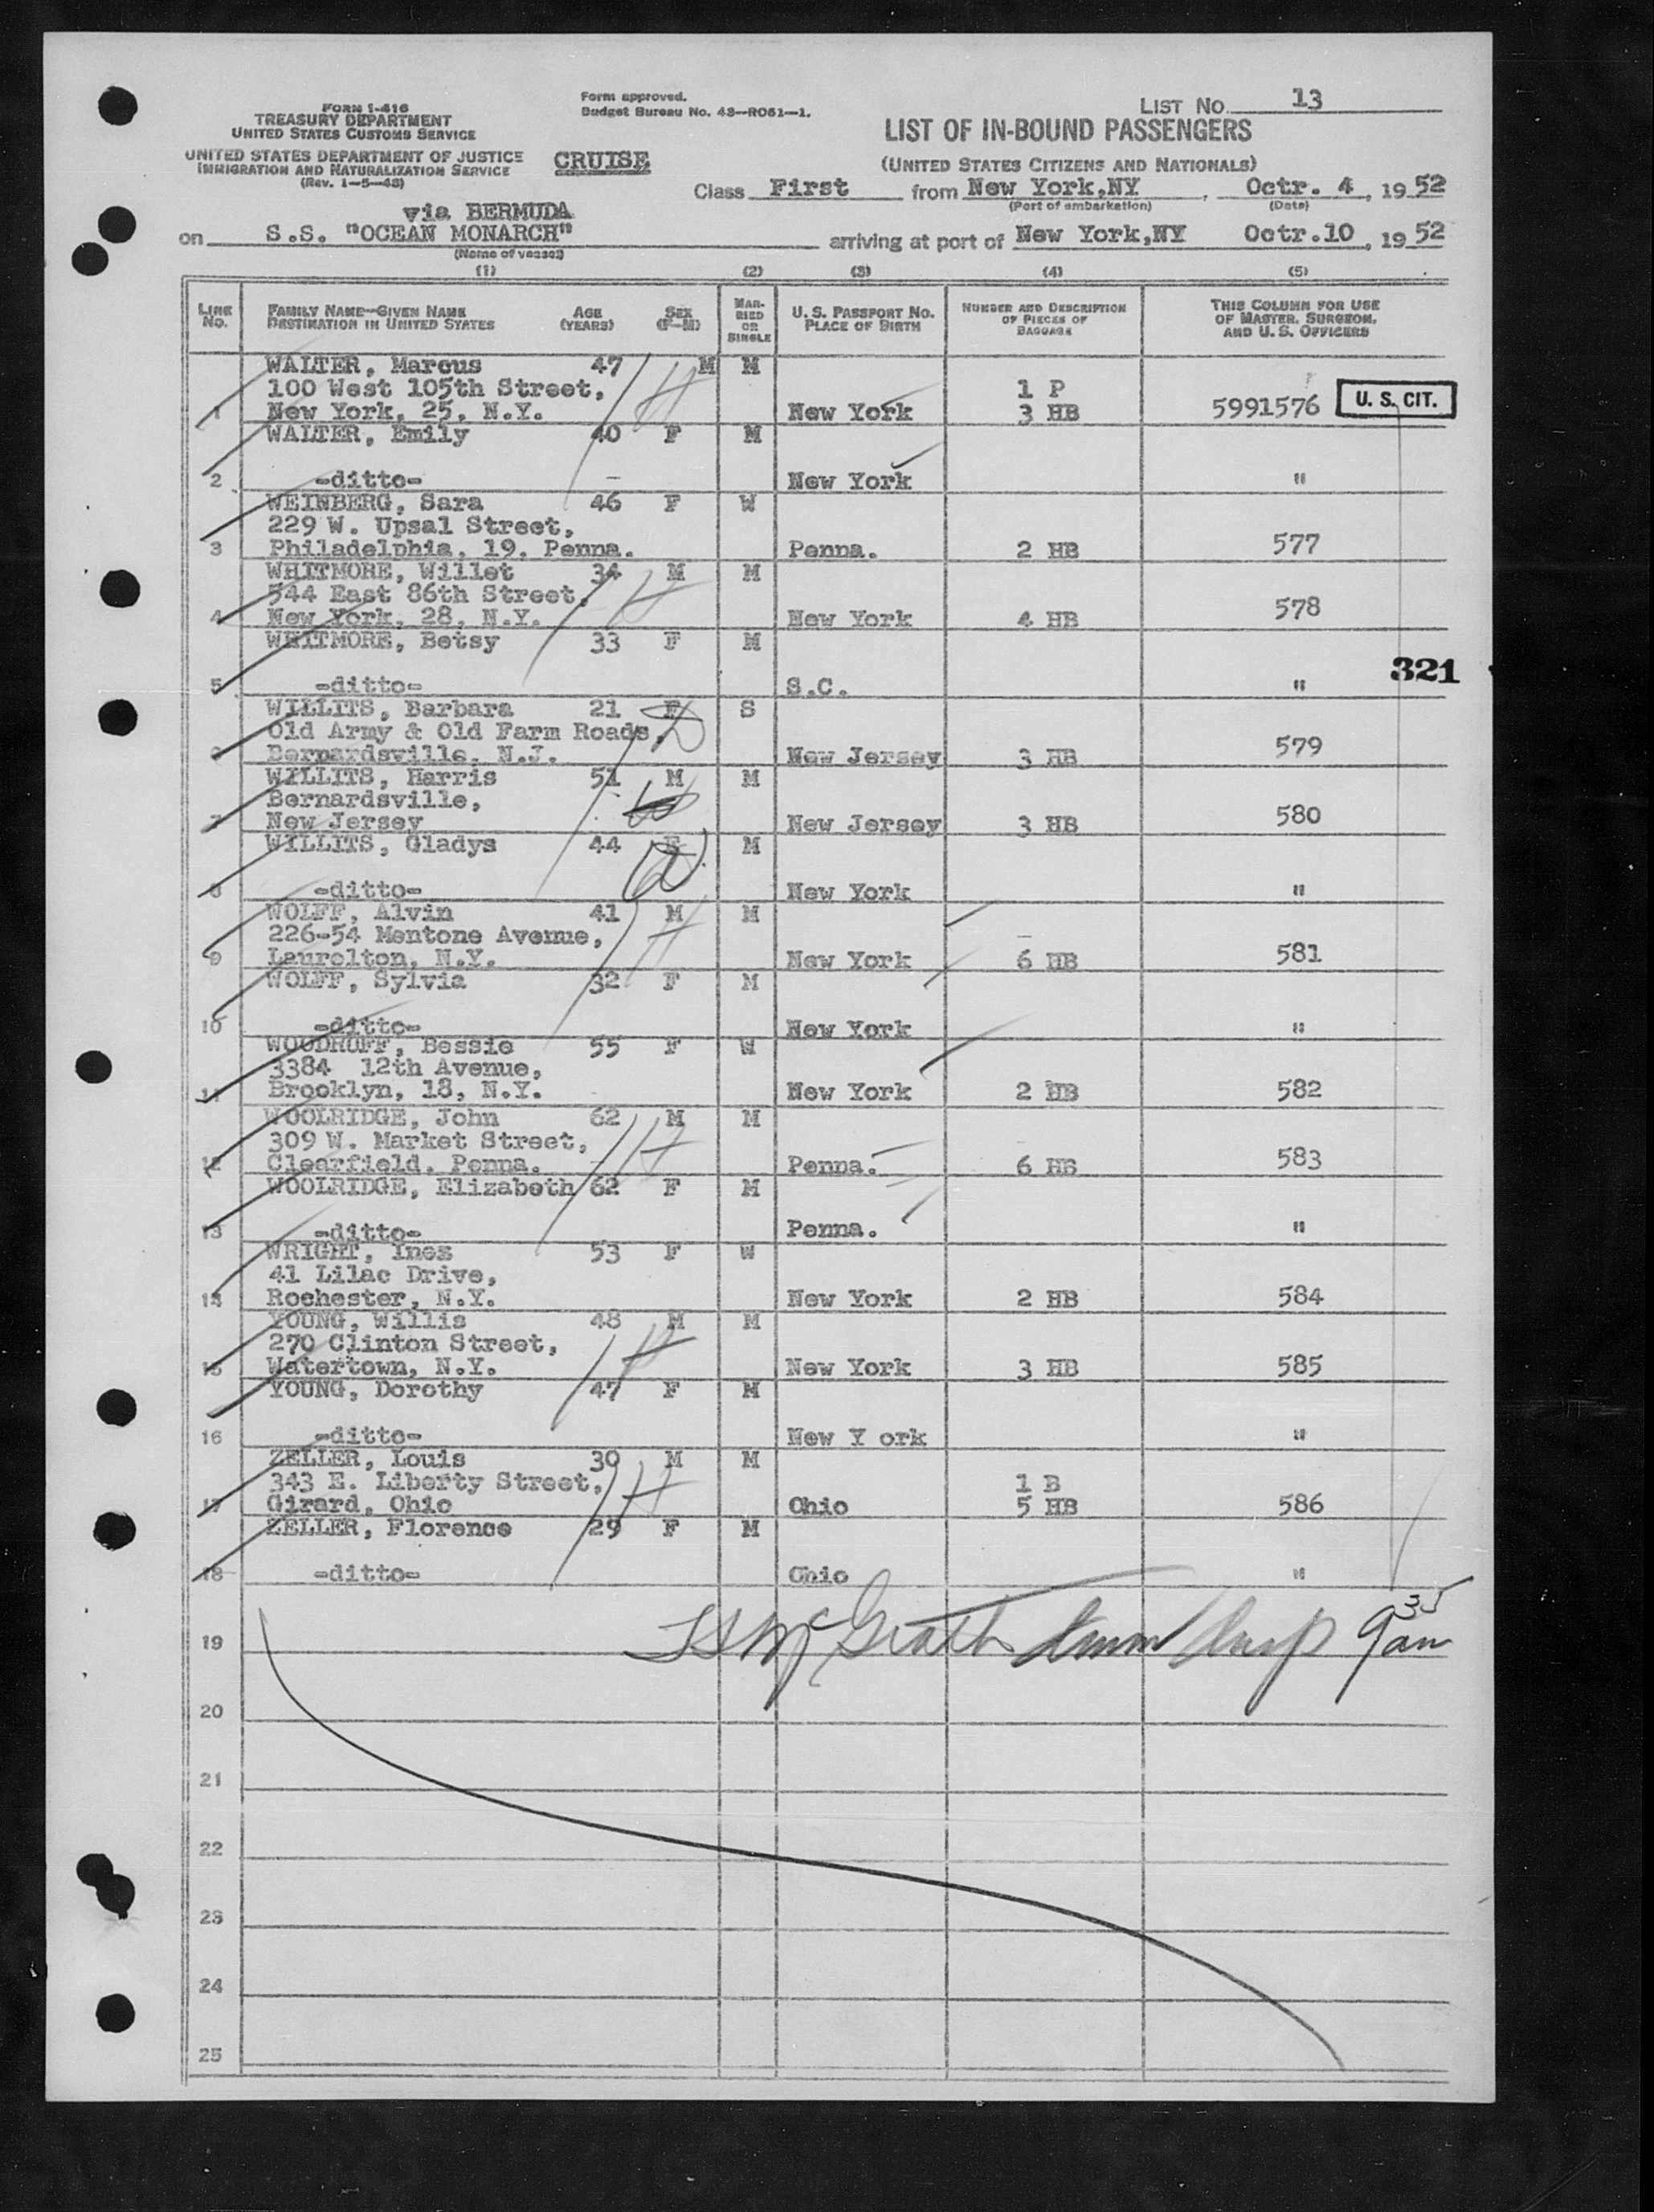 FORM I-416
TREASURY DEPARTMENT
UNITED STATES CUSTOMS SERVICE
UNITED STATES DEPARTMENT OF JUSTICE
IMMIGRATION AND NATURALIZATION SERVICE
(Rev. 1-5-48)
Form approved.
Budget Bureau No. 43-R061-1.
CRUISE
LIST No. 13
LIST OF IN-BOUND PASSENGERS
(UNITED STATES CITIZENS AND NATIONALS)
Class First from New York,NY, Octr. 4, 1952
(Port of embarkation) (Date)
via BERMUDA
on S.S. "OCEAN MONARCH" arriving at port of New York,NY Octr.10, 1952
(Name of vessel)
(1) (2) (3) (4) (5)
LINE No. FAMILY NAME—GIVEN NAME DESTINATION IN UNITED STATES AGE (YEARS) SEX (F-M) MARRIED OR SINGLE U. S. PASSPORT NO. PLACE OF BIRTH NUMBER AND DESCRIPTION OF PIECES OF BAGGAGE THIS COLUMN FOR USE OF MASTER, SURGEON, AND U. S. OFFICERS
WALTER, Marcus 47 M M
100 West 105th Street, 1 P
1 New York, 25, N.Y. New York 3 HB 5991576 U. S. CIT.
WALTER, Emily 40 F M
2 -ditto- New York "
WEINBERG, Sara 46 F W
229 W. Upsal Street,
3 Philadelphia, 19, Penna. Penna. 2 HB 577
WHITMORE, Willet 34 M M
544 East 86th Street,
4 New York, 28, N.Y. New York 4 HB 578
WHITMORE, Betsy 33 F M
321
5 -ditto- S.C. "
WILLITS, Barbara 21 F S
Old Army & Old Farm Roads,
6 Bernardsville, N.J. New Jersey 3 HB 579
WILLITS, Harris 51 M M
Bernardsville,
7 New Jersey New Jersey 3 HB 580
WILLITS, Gladys 44 F M
8 -ditto- New York "
WOLFF, Alvin 41 M M
226-54 Mentone Avenue,
9 Laurelton, N.Y. New York 6 HB 581
WOLFF, Sylvia 32 F M
10 -ditto- New York "
WOODRUFF, Bessie 55 F W
3384 12th Avenue,
11 Brooklyn, 18, N.Y. New York 2 HB 582
WOOLRIDGE, John 62 M M
309 W. Market Street,
12 Clearfield, Penna. Penna. 6 HB 583
WOOLRIDGE, Elizabeth 62 F M
13 -ditto- Penna. "
WRIGHT, Inez 53 F W
41 Lilac Drive,
14 Rochester, N.Y. New York 2 HB 584
YOUNG, Willis 48 M M
270 Clinton Street,
15 Watertown, N.Y. New York 3 HB 585
YOUNG, Dorothy 47 F M
16 -ditto- New Y ork "
ZELLER, Louis 30 M M
343 E. Liberty Street, 1 B
17 Girard, Ohio Ohio 5 HB 586
ZELLER, Florence 29 F M
18 -ditto- Ohio "
19 McGrath Imm Insp 9 35 am
20
21
22
23
24
25